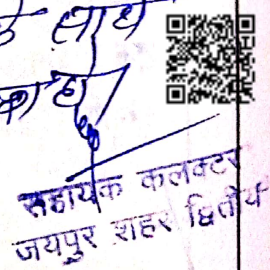 के साथ
सहायक कलक्टर
जयपुर शहर द्वितीय